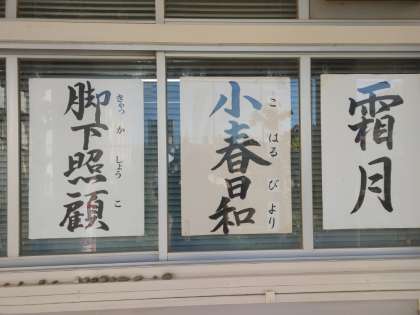 霜月
小春日和
こ はる び より
脚下照顧
きゃっ か しょう こ